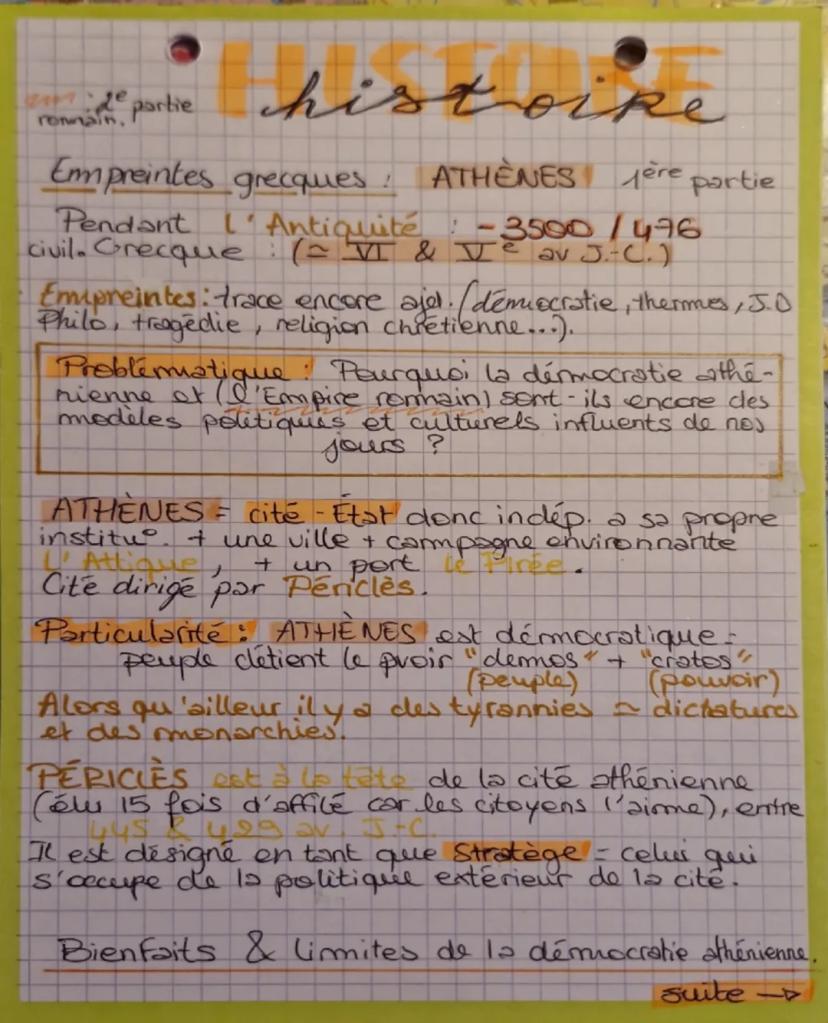 HISTOIRE
histoire
: 2e partie
romain.
Empreintes grecques : ATHÈNES 1ère partie
Pendant l'Antiquité : -3500 / 476
civil. Grecque : (≃ VI & Ve av J.-C.)
Empreintes : trace encore ajd. (démocratie, thermes, J.O
Philo, tragédie, religion chrétienne...).
Problématique : Pourquoi la démocratie athé-
nienne et (l'Empire romain) sont-ils encore des
modèles politiques et culturels influents de nos
jours ?
ATHÈNES = cité-État donc indép. a sa propre
institu°. + une ville + campagne environnante
L'Attique, + un port le Pirée.
Cité dirigé par Périclès.
Particularité : ATHÈNES est démocratique =
peuple détient le pvoir "demos" + "cratos"
(peuple) (pouvoir)
Alors qu'ailleur il y a des tyrannies ≃ dictatures
et des monarchies.
PÉRICLÈS est à la tête de la cité athénienne
(élu 15 fois d'affilé car les citoyens l'aime), entre
445 & 429 av. J-C.
Il est désigné en tant que Stratège = celui qui
s'occupe de la politique extérieur de la cité.
Bienfaits & limites de la démocratie athénienne.
suite →